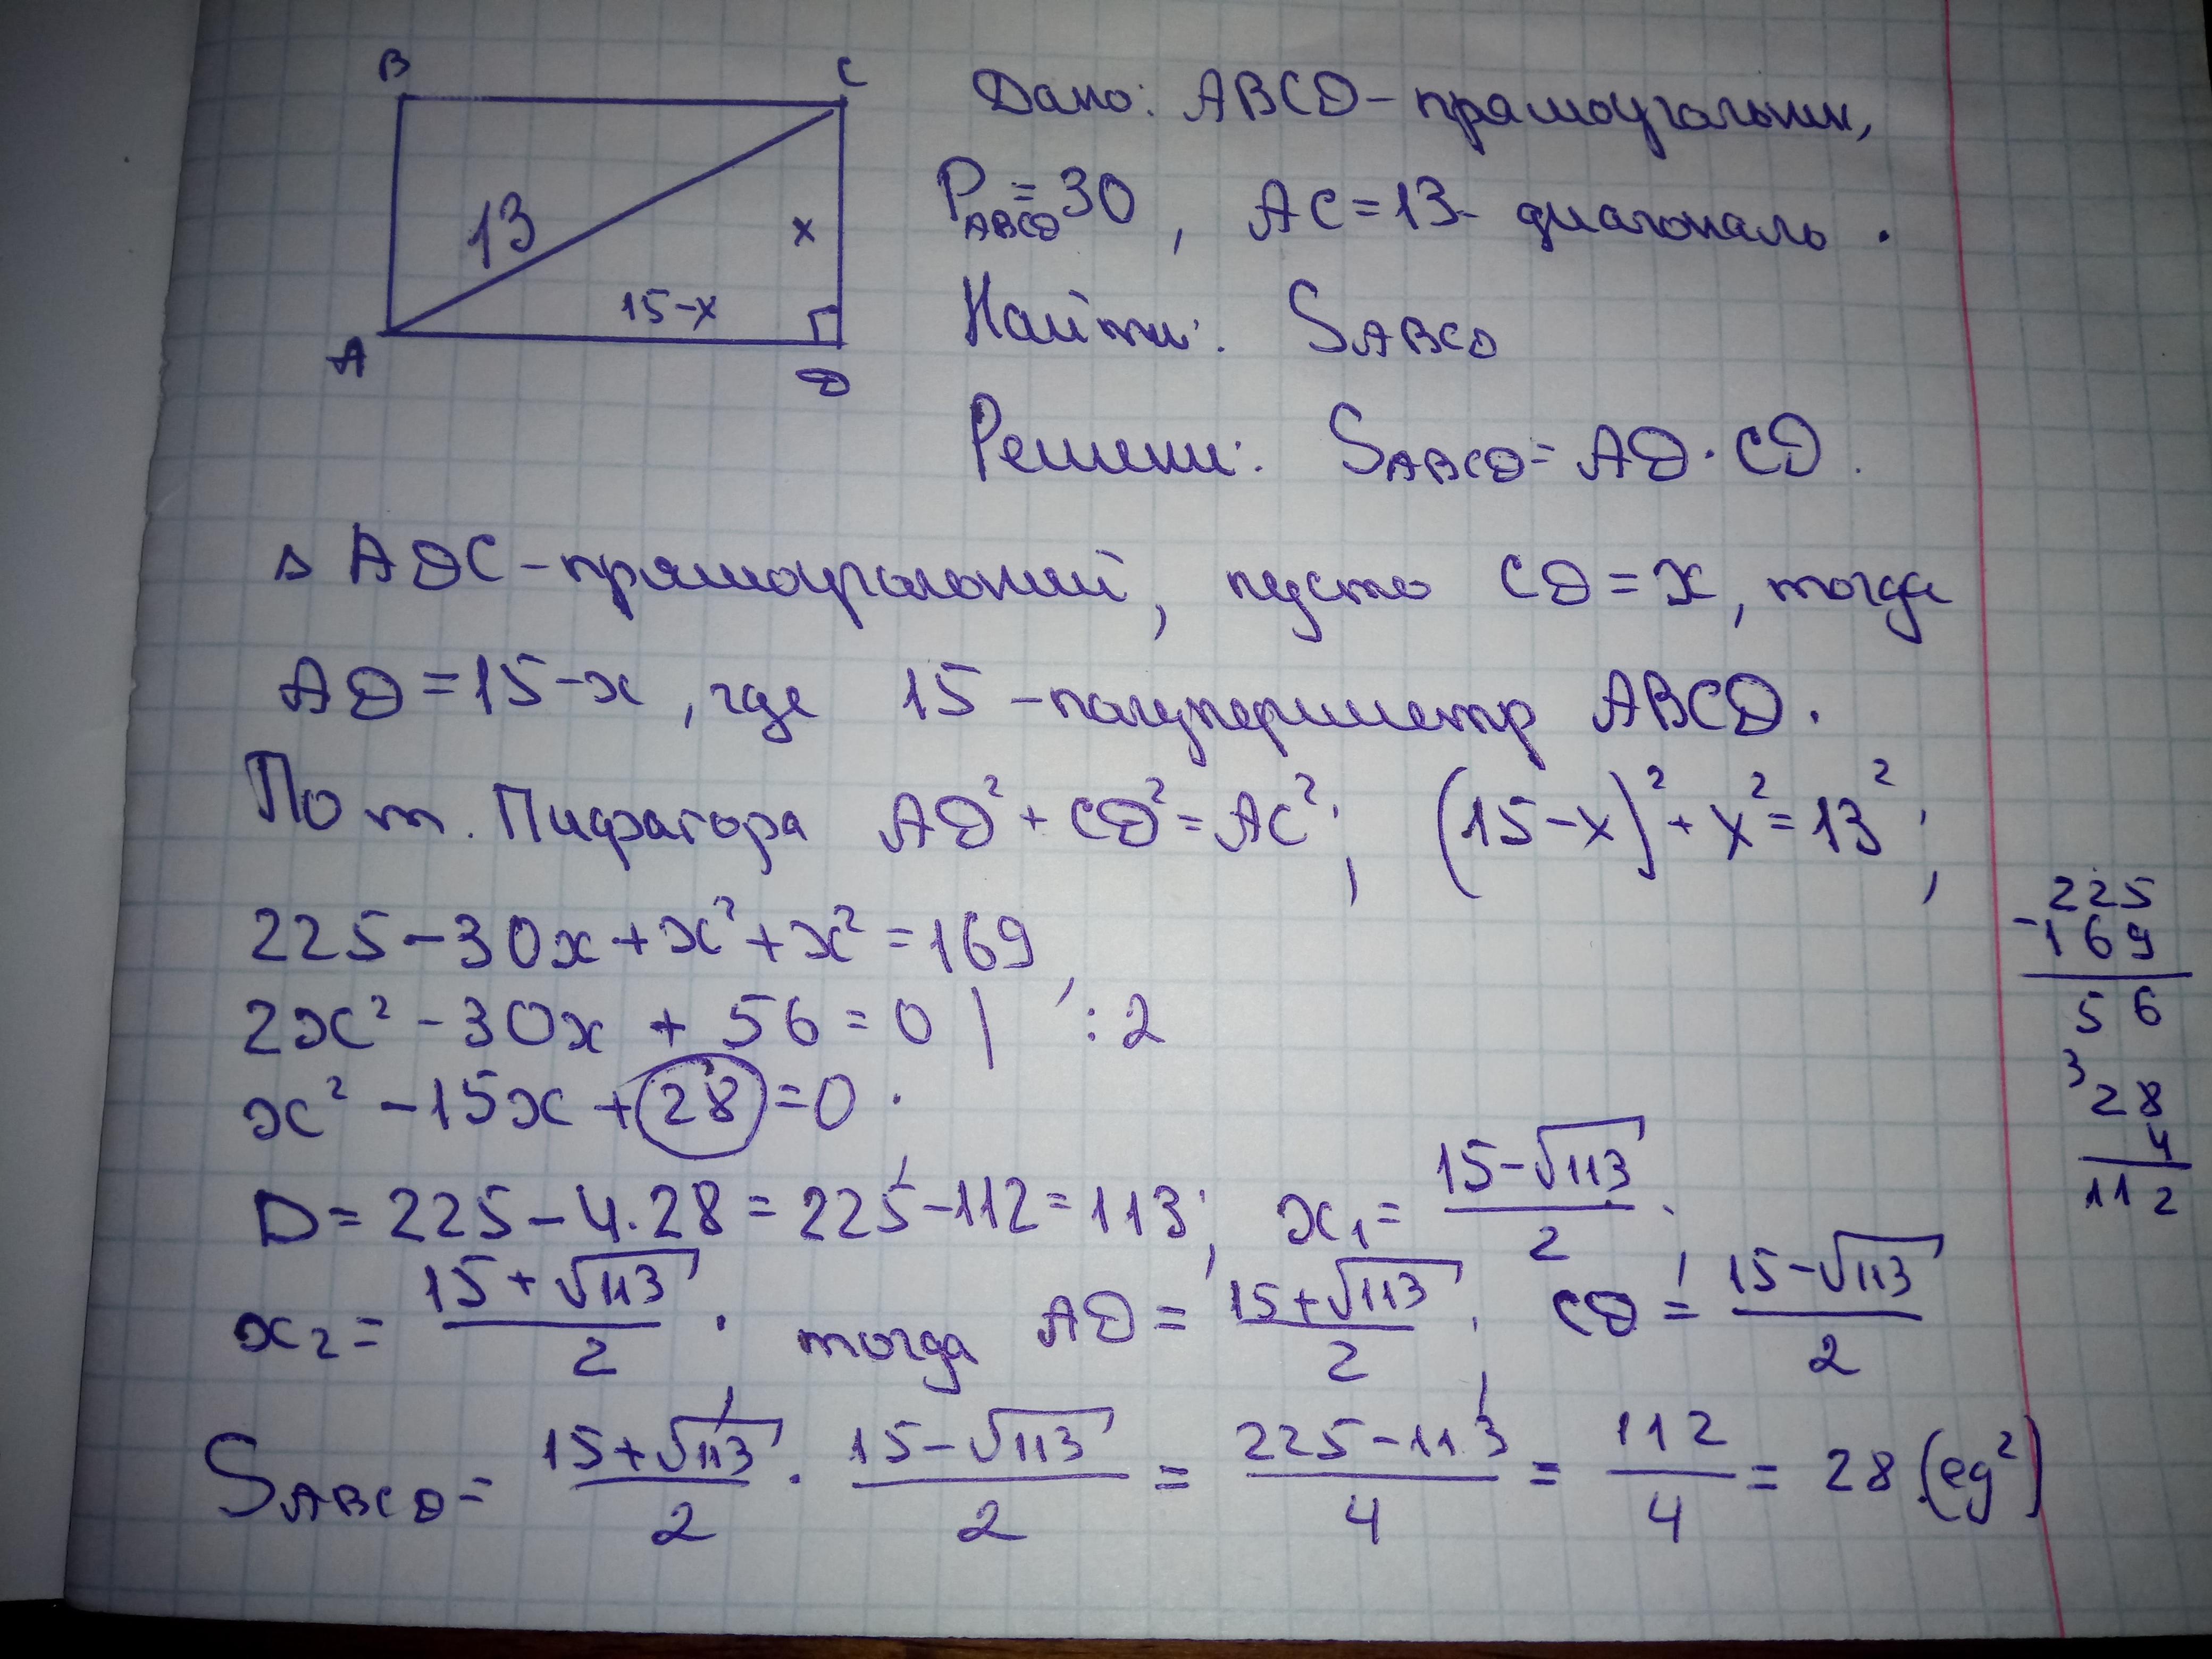 B C
13 x
15-x
A D
Дано: ABCD - прямоугольник,
P_ABCD = 30, AC = 13 - диагональ.
Найти: S_ABCD
Решени: S_ABCD = AD · CD.
△ ADC - прямоугольный, пусть CD = x, тогда
AD = 15 - x, где 15 - полупериметр ABCD.
По т. Пифагора AD² + CD² = AC²; (15-x)² + x² = 13²;
225 - 30x + x² + x² = 169;
2x² - 30x + 56 = 0 | :2
x² - 15x + 28 = 0.
D = 225 - 4·28 = 225 - 112 = 113; x₁ = (15-√113)/2;
x₂ = (15+√113)/2. тогда AD = (15+√113)/2; CD = (15-√113)/2
S_ABCD = (15+√113)/2 · (15-√113)/2 = (225-113)/4 = 112/4 = 28 (ед²)
225
-169
56
3
28
4
112